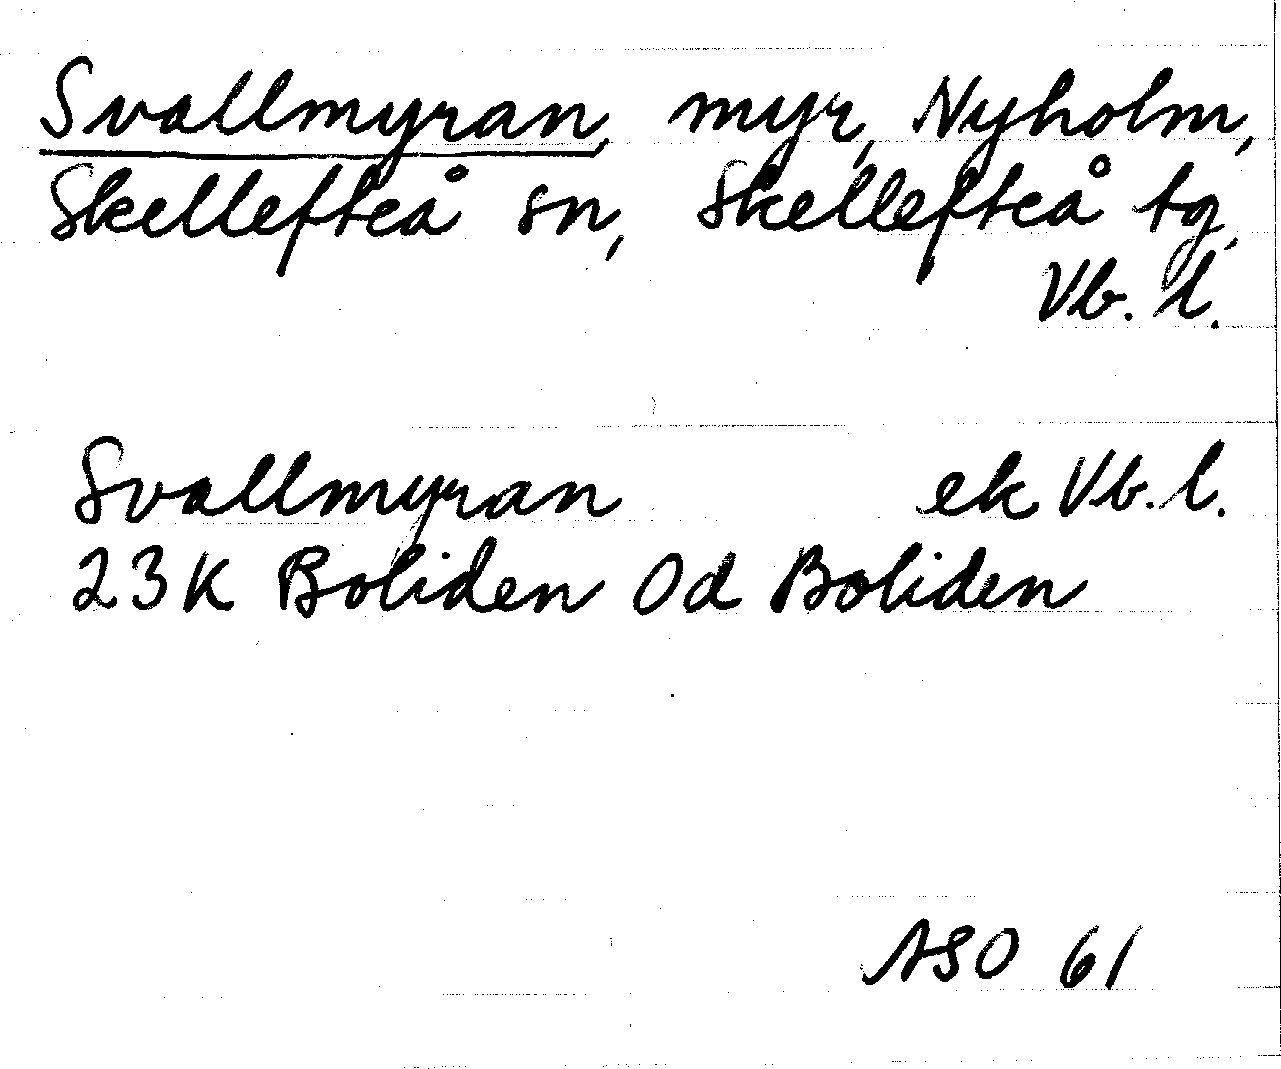 Svallmyran, myr, Nyholm,
Skellefteå sn, Skellefteå tg,
Vb. l.
Svallmyran ek Vb. l.
23K Boliden Od Boliden
ASO 61